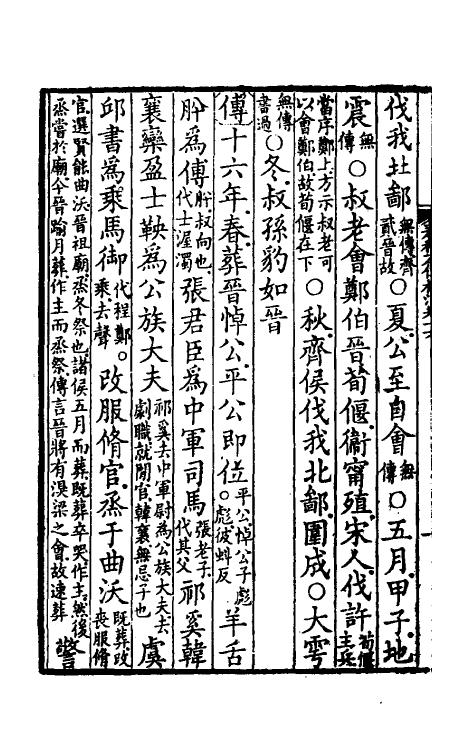 伐我北鄙無傳齊貳晉故○夏公至自會無傳○五月甲子地
震無傳○叔老會鄭伯晉荀偃衛甯殖宋人伐許荀偃主兵
當序鄭上方示叔老可以會鄭伯故荀偃在下○秋齊侯伐我北鄙圍成○大雩
無傳書過○冬叔孫豹如晉
傳十六年春葬晉悼公平公即位平公悼公子彪○彪彼蚪反羊舌
肸為傅肸叔向也代士渥濁張君臣為中軍司馬張老子代其父祁奚韓
襄欒盈士鞅為公族大夫祁奚去中軍尉為公族大夫去劇職就閒官韓襄無忌子也虞
邱書為乘馬御代程鄭○乘去聲改服脩官烝于曲沃既葬改喪服脩
官選賢能曲沃晉祖廟烝冬祭也諸侯五月而葬既葬卒哭作主然後烝嘗於廟今晉踰月葬作主而烝祭傳言晉將有溴梁之會故速葬警